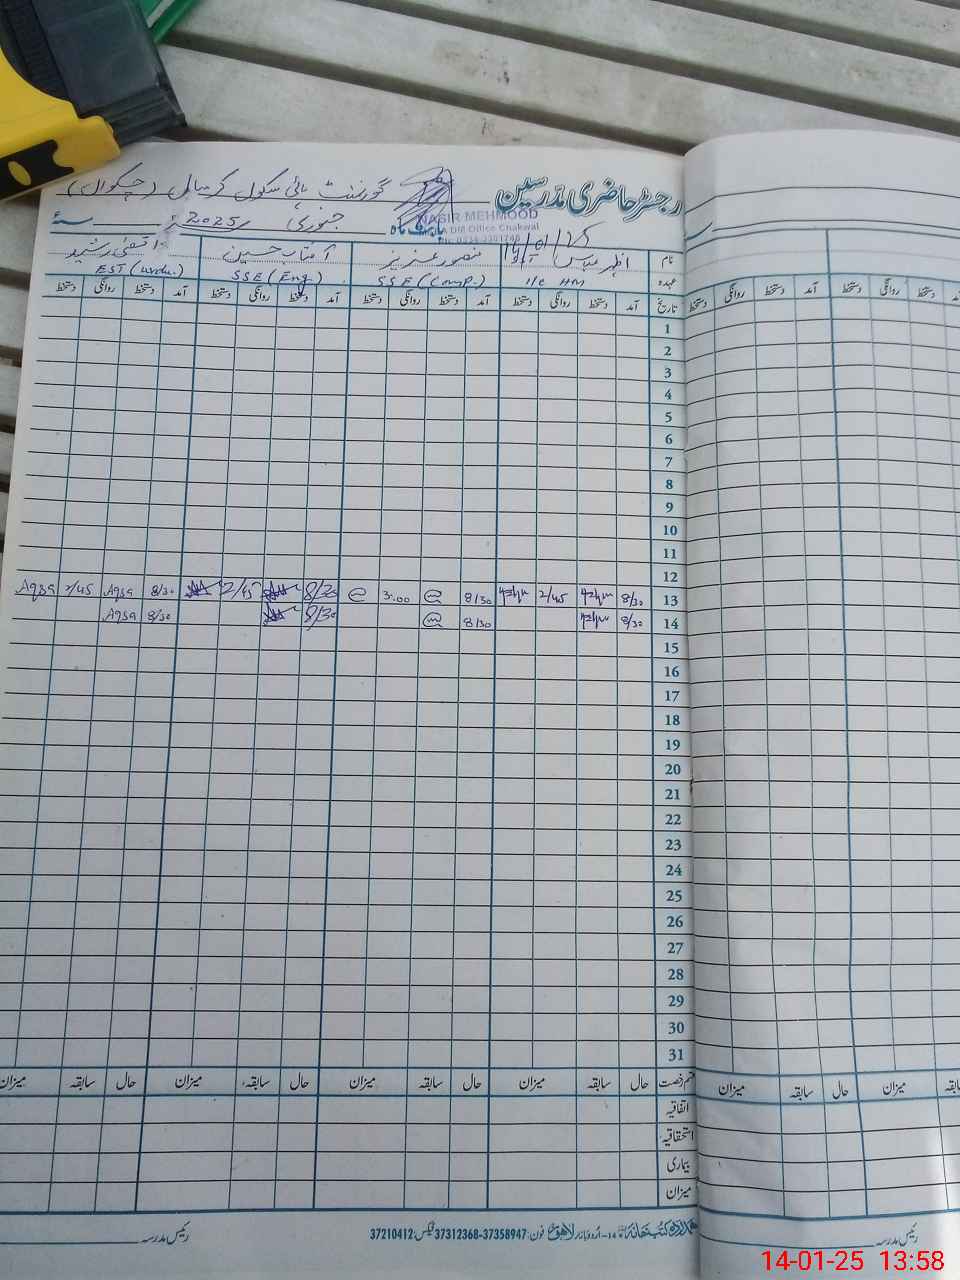 رجسٹر حاضری مدرسین گورنمنٹ ہائی سکول کرسال (چکوال)
بابت ماہ جنوری 2025ء سنۂ
NASIR MEHMOOD
DM Office Chakwal
14/01/25
نام اظہر عباس منصور عزیز آفتاب حسین اقصٰی رشید
عہدہ I/C HM SSE (Comp.) SSE (Eng) EST (Urdu.)
تاریخ آمد دستخط روانگی دستخط آمد دستخط روانگی دستخط آمد دستخط روانگی دستخط آمد دستخط روانگی دستخط
1
2
3
4
5
6
7
8
9
10
11
12
13 8/30 2/45 8/30 3:00 8/30 2/45 8/30 Aqsa 2/45 Aqsa
14 8/30 8/30 8/30 8/30 Aqsa
15
16
17
18
19
20
21
22
23
24
25
26
27
28
29
30
31
قسم رخصت حال سابقہ میزان حال سابقہ میزان حال سابقہ میزان حال سابقہ میزان
اتفاقیہ
استحقاقیہ
بیماری
میزان
ہمدرد کتب خانہ 14-اردو بازار لاہور فون: 37358947-37312368 فیکس: 37210412
رئیس مدرسہ
آمد دستخط روانگی دستخط
روانگی دستخط
میزان سابقہ حال میزان
رئیس مدرسہ
14-01-25 13:58